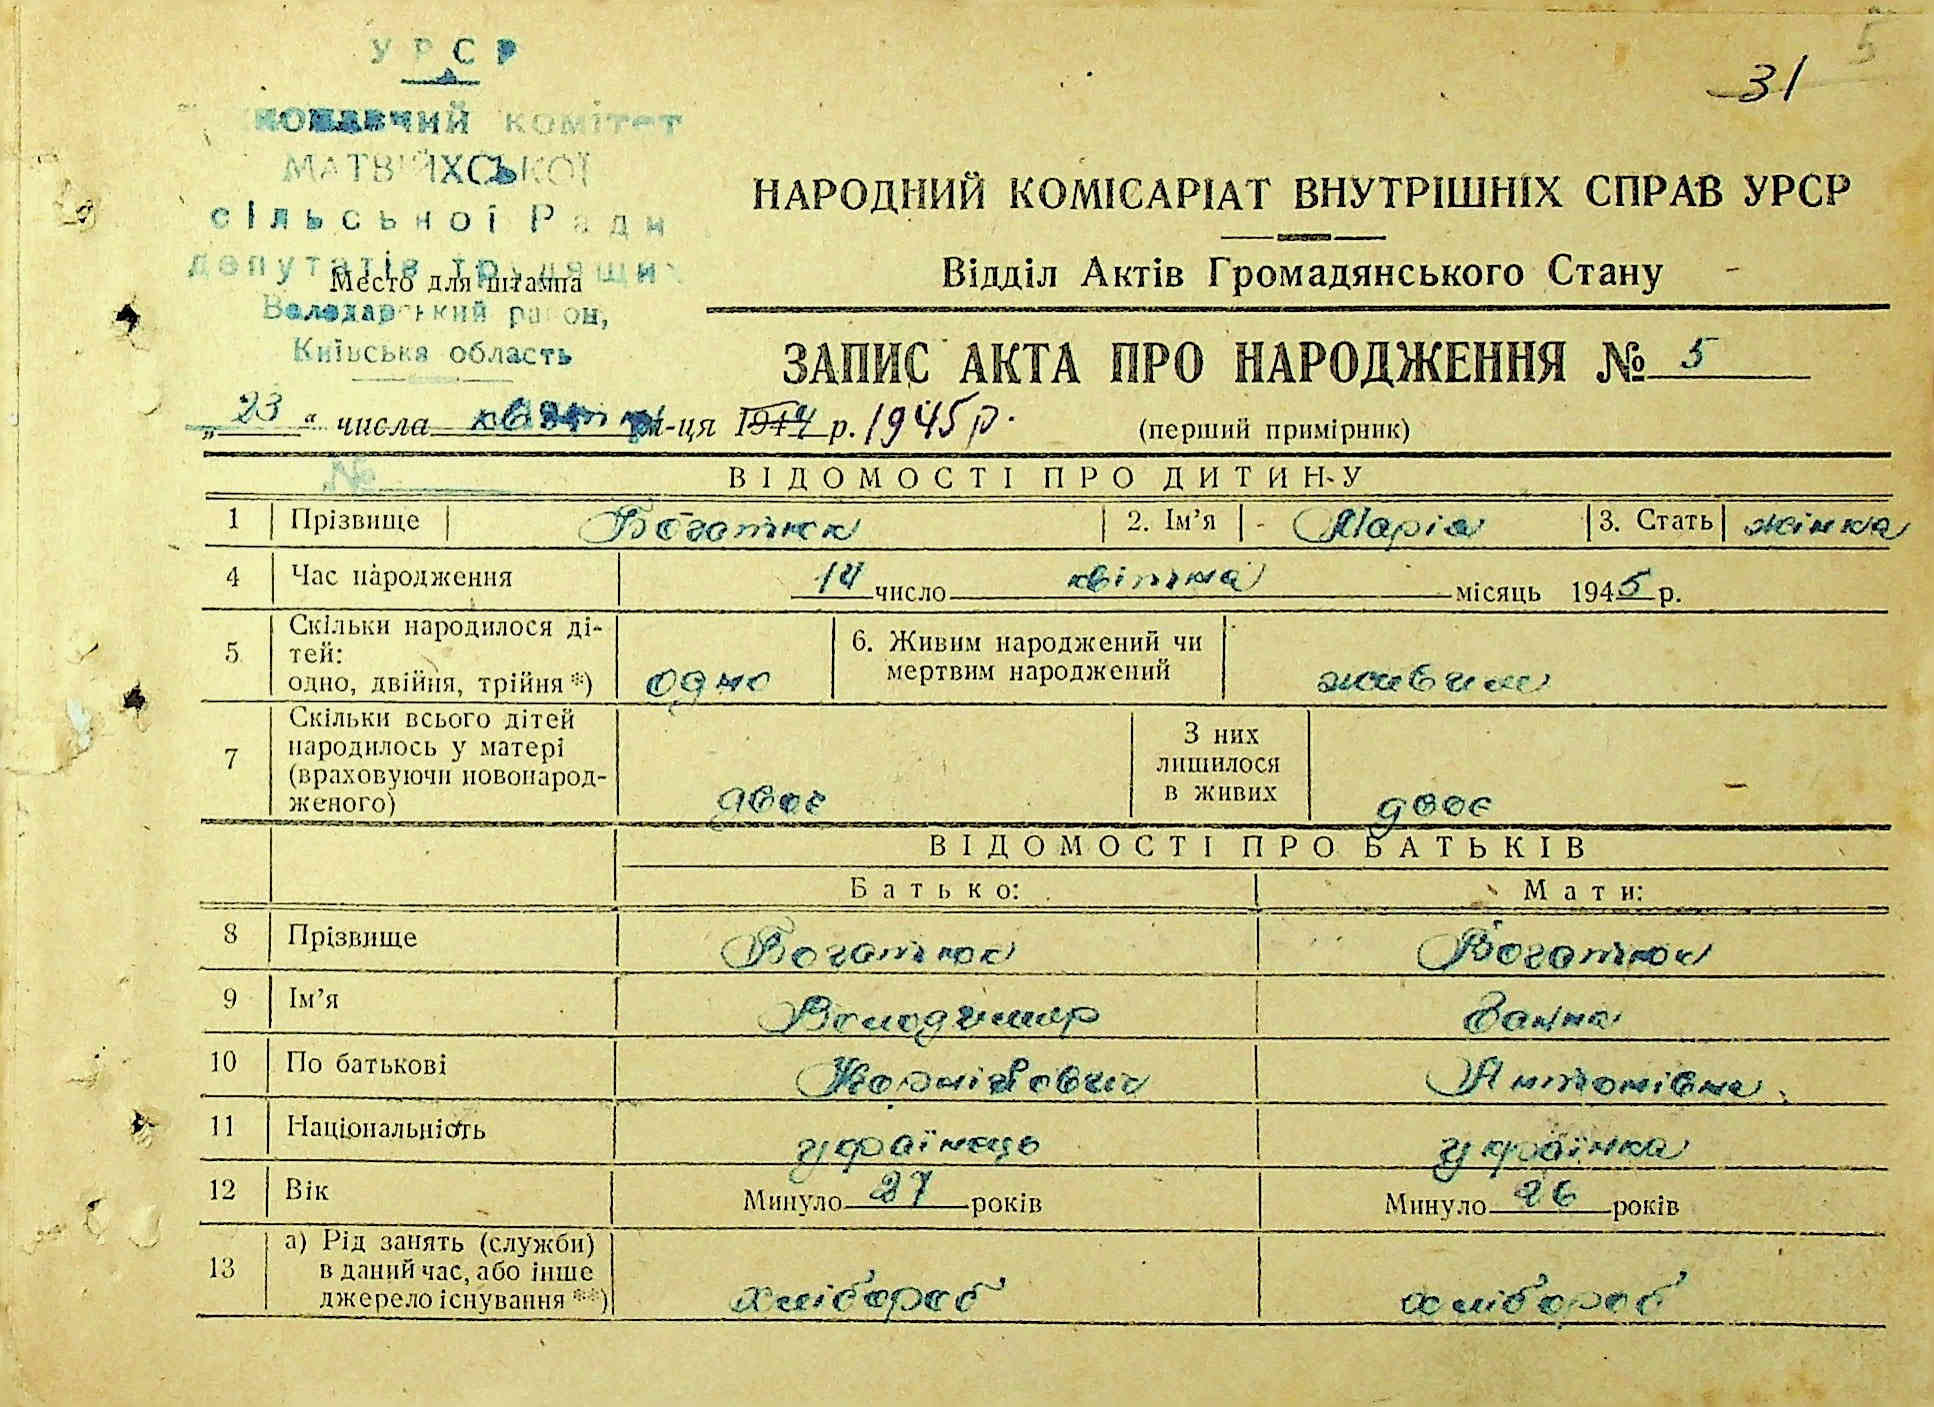 5
31
УРСР
Виконавчий комітет
МАТВІЇХСЬКОЇ
сільської Ради
депутатів трудящих
Место для штампа
Володарський район,
Київська область
НАРОДНИЙ КОМІСАРІАТ ВНУТРІШНІХ СПРАВ УРСР
Відділ Актів Громадянського Стану
ЗАПИС АКТА ПРО НАРОДЖЕННЯ № 5
„23“ числа квітня м-ця 1944 р. 1945 р. (перший примірник)
№
ВІДОМОСТІ ПРО ДИТИНУ
1 Прізвище Богатюк 2. Ім’я Марія 3. Стать жінка
4 Час народження 14 число квітня місяць 1945 р.
5 Скільки народилося ді-
тей:
одно, двійня, трійня*) одно 6. Живим народжений чи
мертвим народжений живим
7 Скільки всього дітей
народилось у матері
(враховуючи новонарод-
женого) двоє З них
лишилося
в живих двоє
ВІДОМОСТІ ПРО БАТЬКІВ
Батько: Мати:
8 Прізвище Богатюк Богатюк
9 Ім’я Володимир Ганна
10 По батькові Корнійович Антонівна
11 Національність українець українка
12 Вік Минуло 27 років Минуло 26 років
13 а) Рід занять (служби)
в даний час, або інше
джерело існування**) хлібороб хлібороб